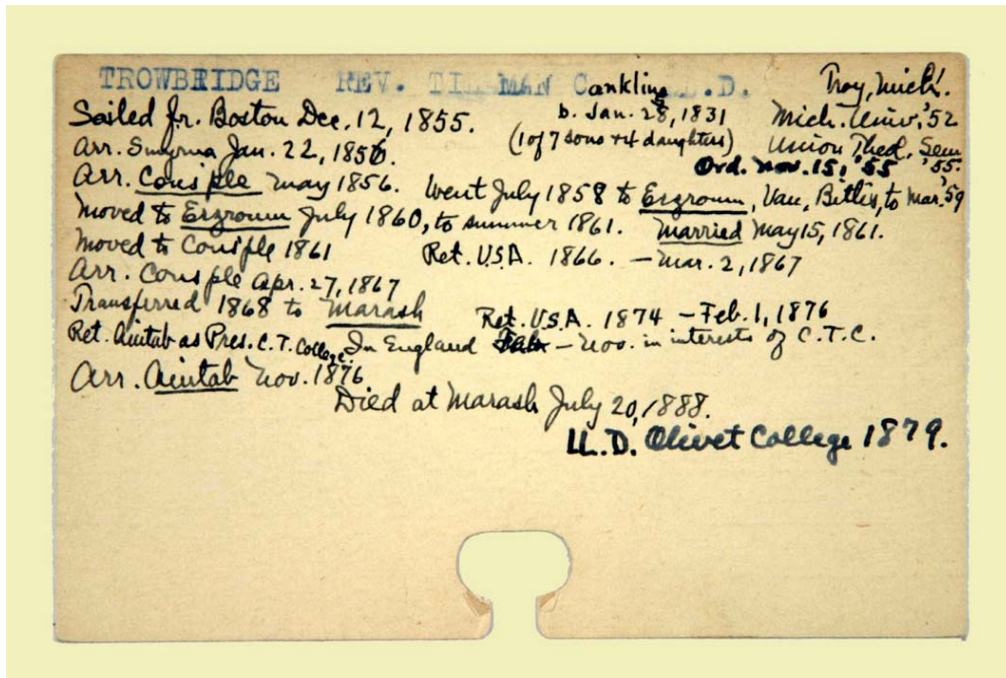 TROWBRIDGE REV. TILLMAN Conkling LL.D. Troy, Mich.
Sailed fr. Boston Dec. 12, 1855. b. Jan. 28, 1831 Mich. Univ. '52
(1 of 7 sons + 4 daughters) Union Theol. Sem '55.
Arr. Smyrna Jan. 22, 1856. Ord. Nov. 15, '55
Arr. Cons'ple May 1856. Went July 1858 to Erzroum, Van, Bitlis, to Mar. '59
Moved to Erzroum July 1860, to summer 1861. Married May 15, 1861.
Moved to Cons'ple 1861 Ret. U.S.A. 1866. – Mar. 2, 1867
Arr. Cons'ple Apr. 27, 1867
Transferred 1868 to Marash Ret. U.S.A. 1874 – Feb. 1, 1876
Ret. Aintab as Pres. C. T. College. In England – Nov. in interests of C.T.C.
Arr. Aintab Nov. 1876
Died at Marash July 20, 1888.
LL.D. Olivet College 1879.